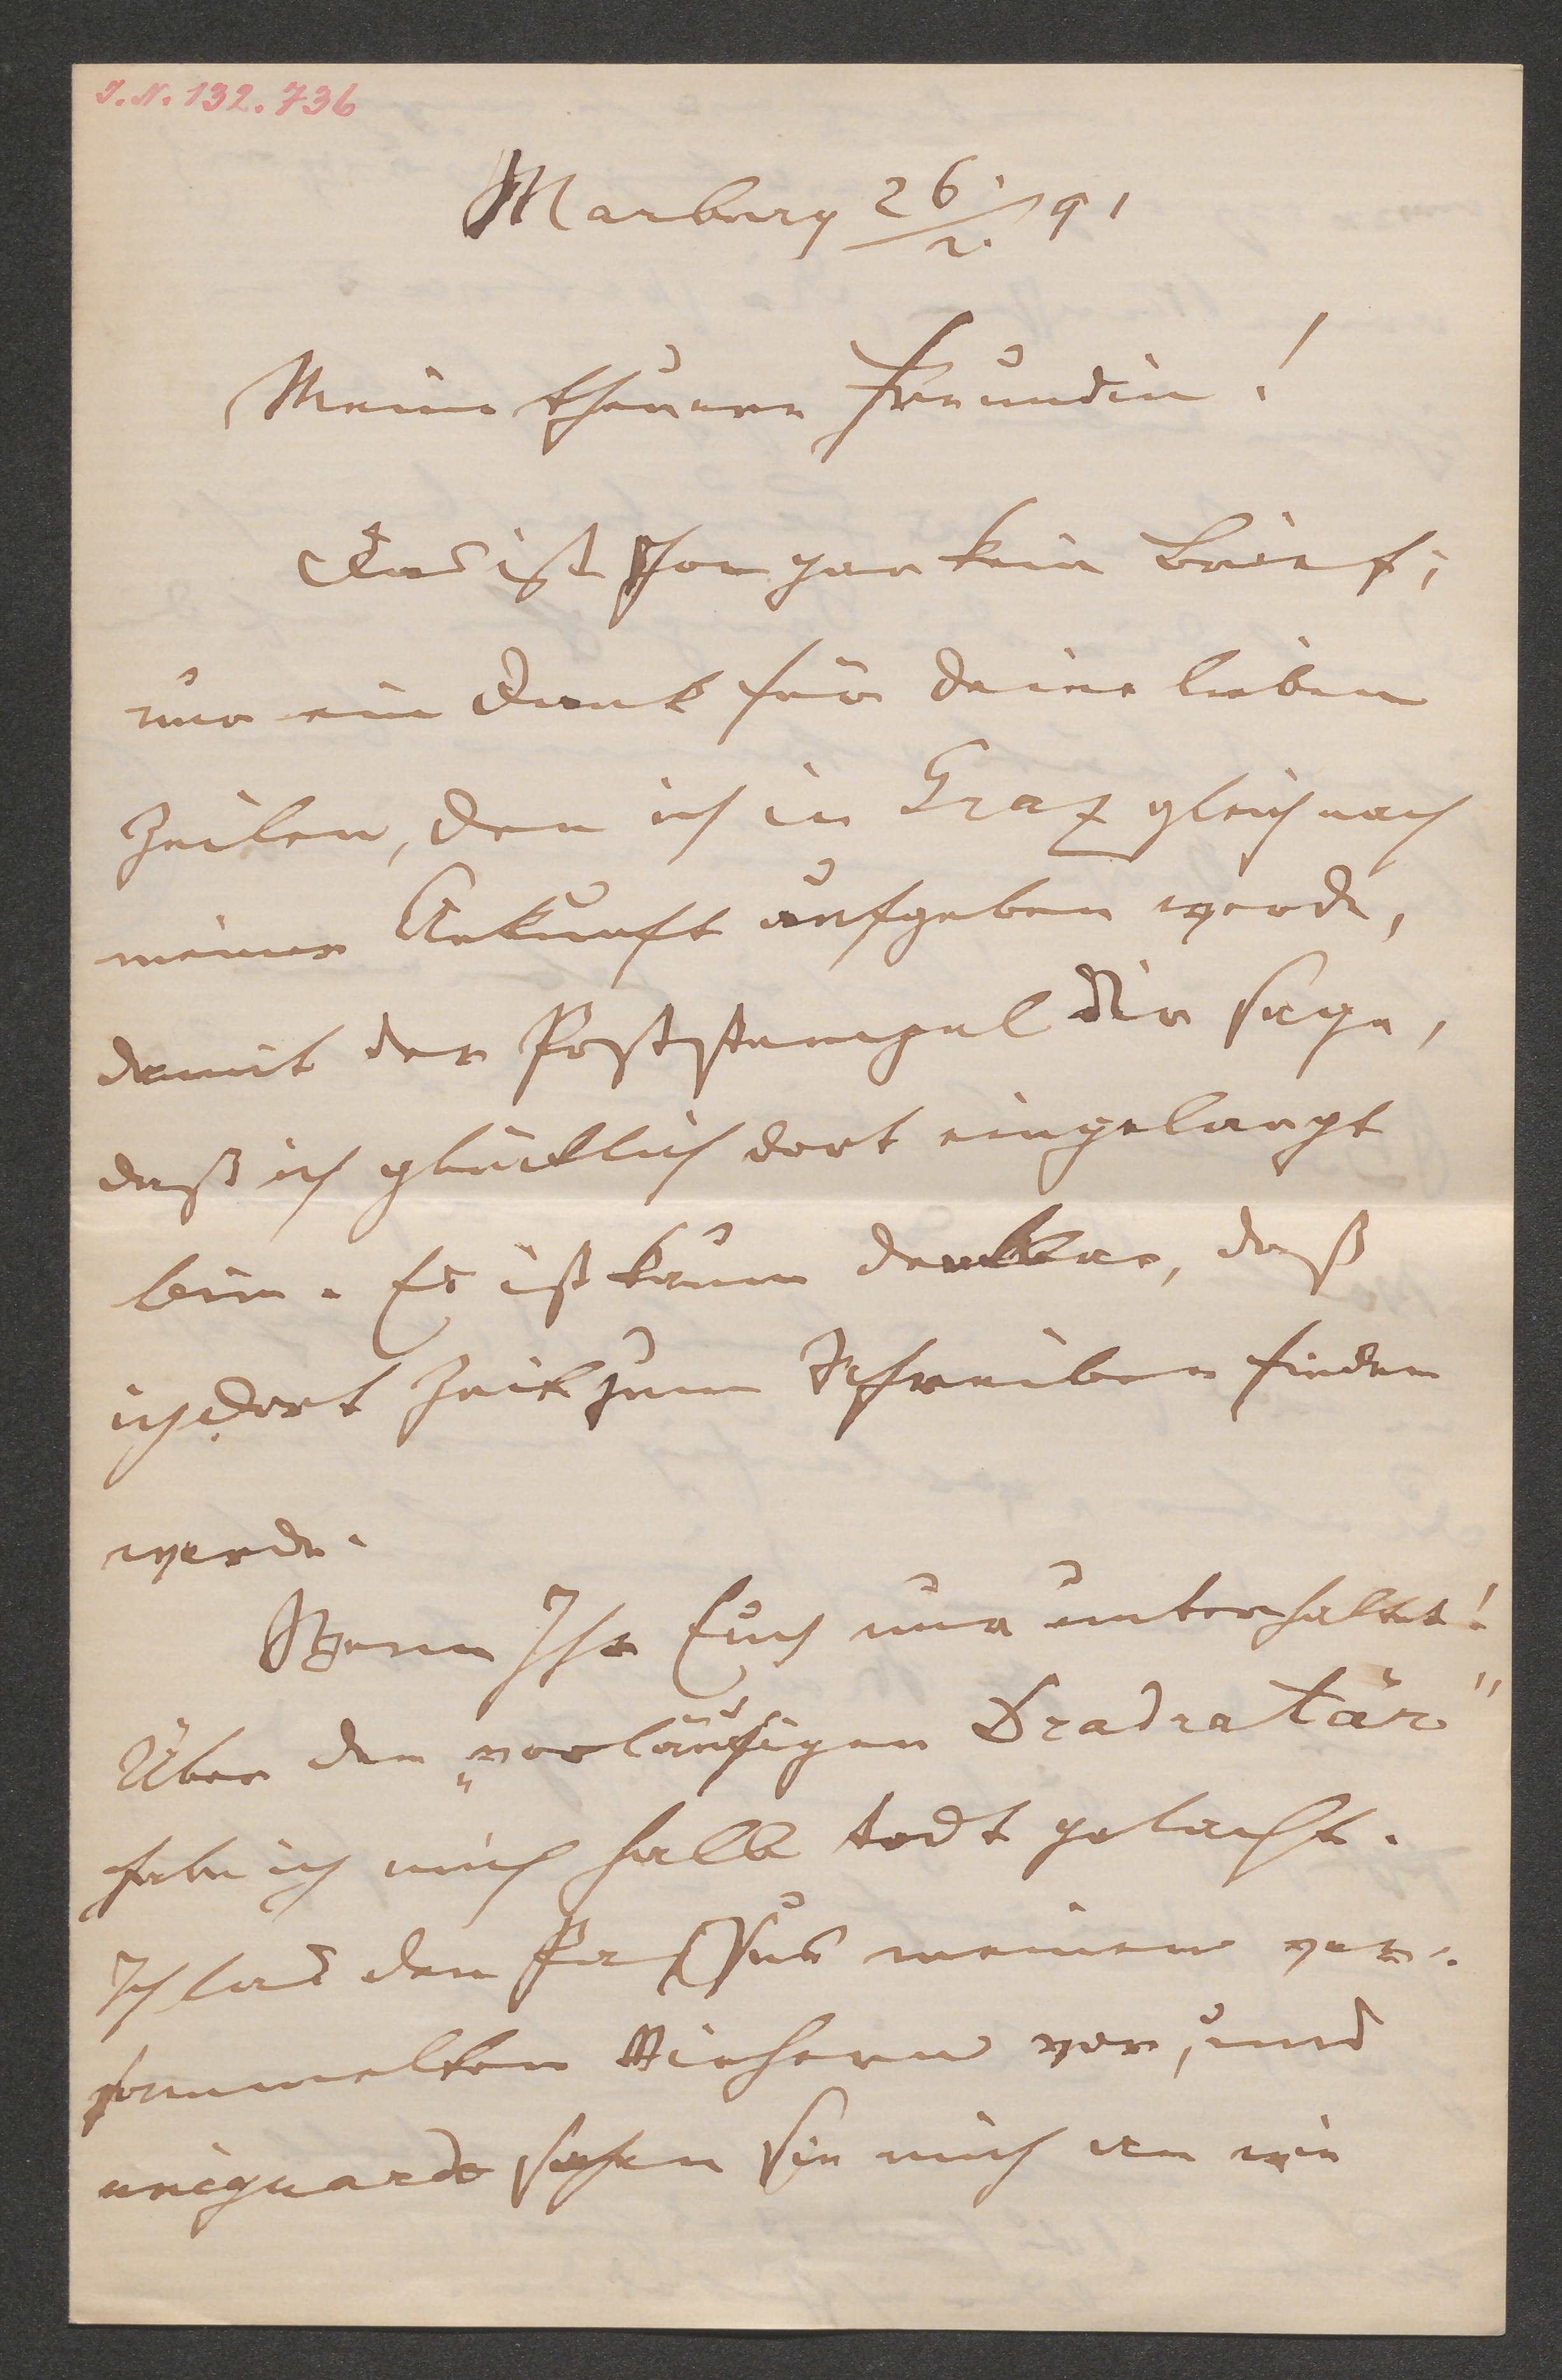 I.N. 132.736
Marburg 26/2. 91
Meine theuere Freundin!
Das ist schon gar kein Brief;
nur ein Dank für Deine lieben
Zeilen, den ich in Graz gleich nach
meiner Ankunft aufgeben werde,
damit der Poststempel Dir sage,
daß ich glücklich dort eingelangt
bin. Es ist kaum denkbar, daß
ich dort Zeit zum Schreiben finden
werde.
Wenn Ihr Euch nur unterhaltet!
Über den „vorläufigen Dradratär"
habe ich mich halb todt gelacht.
Ich las den Passus meinen ver-
sammelten vor, und
sahen sie mich an wie